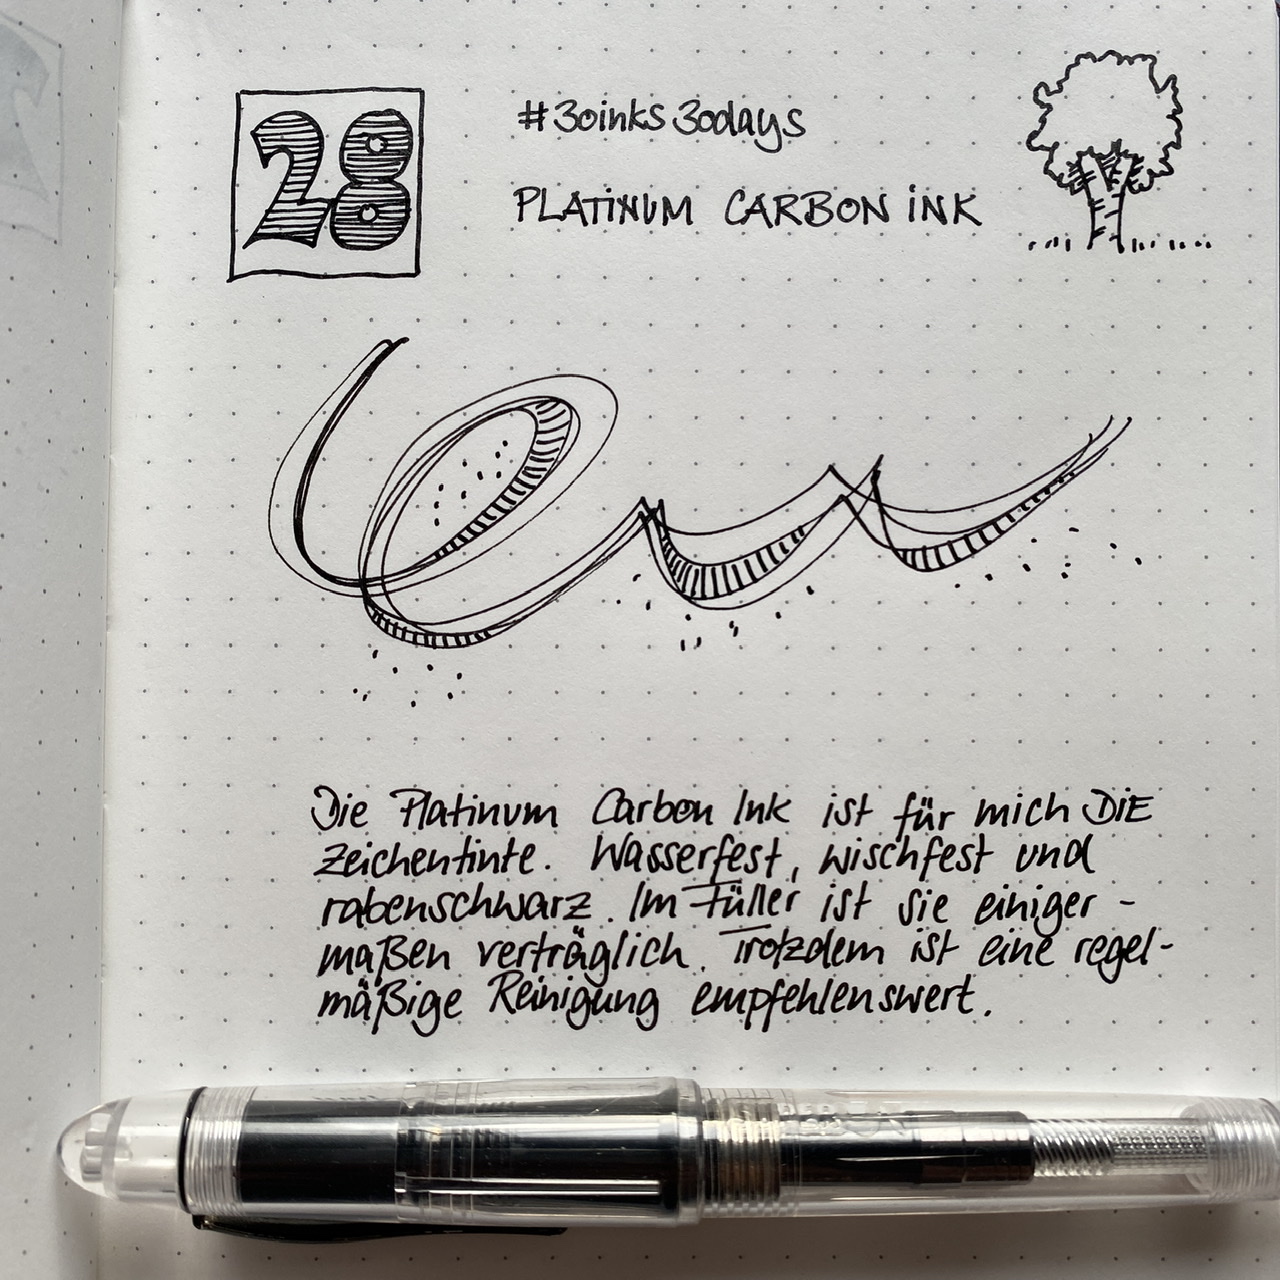 28
#30inks30days
PLATINUM CARBON INK
Die Platinum Carbon Ink ist für mich DIE
Zeichentinte. Wasserfest, wischfest und
rabenschwarz. Im Füller ist sie einiger-
maßen verträglich. Trotzdem ist eine regel-
mäßige Reinigung empfehlenswert.